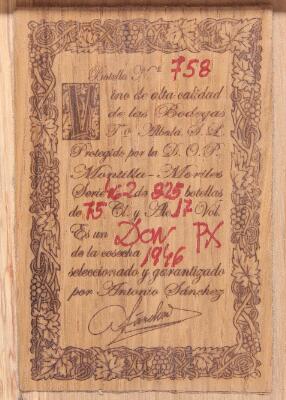 Botella Nº 758
Vino de alta calidad
de las Bodegas
Tº Albala, S. L.
Protegido por la D.O.P.
Montilla - Moriles
Serie 462 de 825 botellas
de 75 Cl. y Alc 17 Vol.
Es un Don PX
de la cosecha 1946
seleccionado y garantizado
por Antonio Sánchez